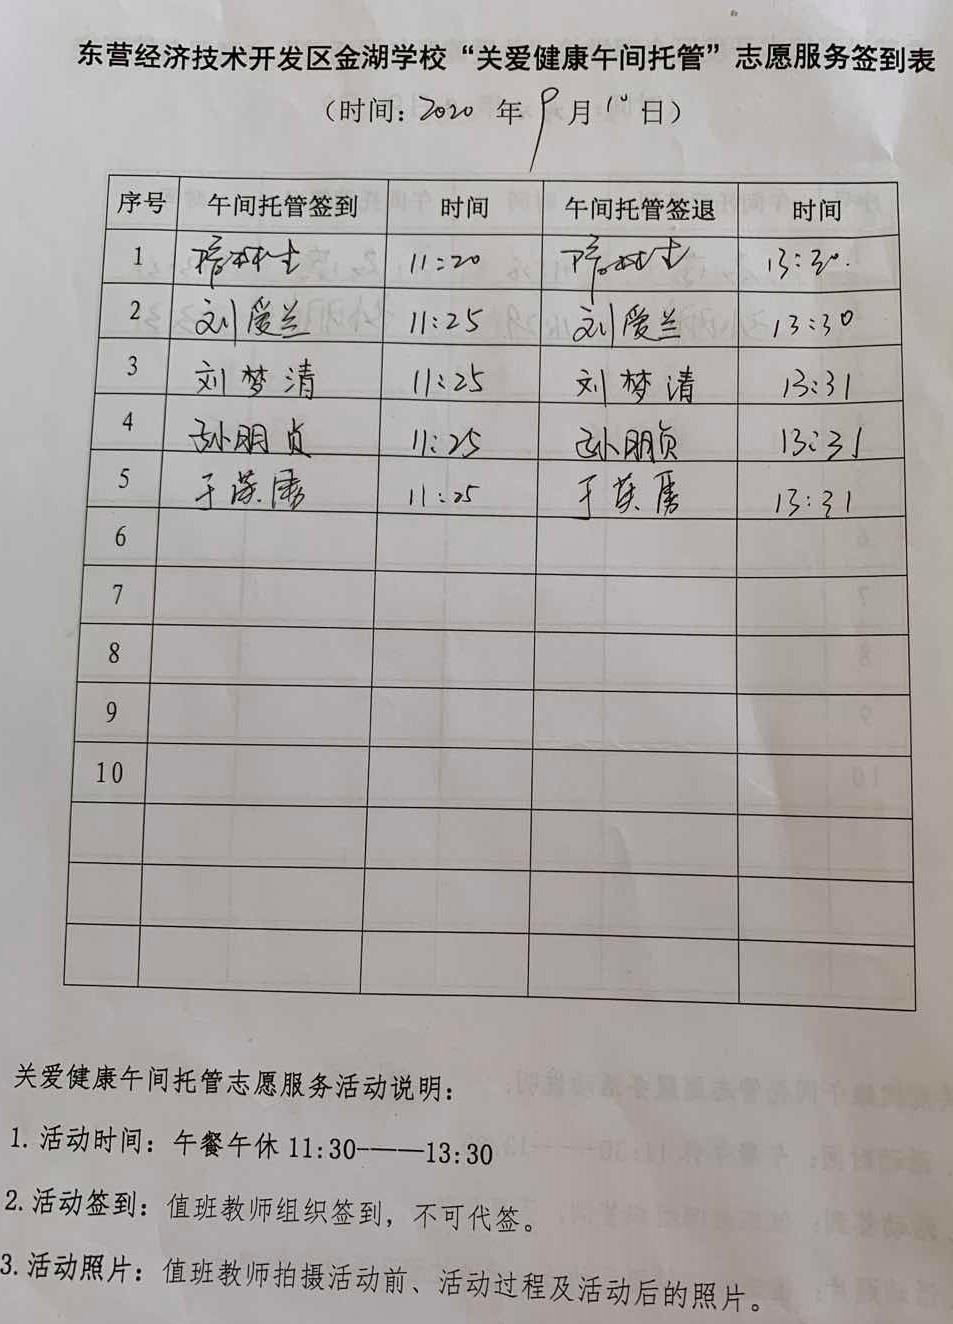 东营经济技术开发区金湖学校“关爱健康午间托管”志愿服务签到表
（时间：2020 年 9 月 10 日）
序号 午间托管签到 时间 午间托管签退 时间
1 11:20 13:30.
2 刘爱兰 11:25 刘爱兰 13:30
3 刘梦清 11:25 刘梦清 13:31
4 孙朋贞 11:25 孙朋贞 13:31
5 于 11:25 于 13:31
6
7
8
9
10
关爱健康午间托管志愿服务活动说明：
1. 活动时间：午餐午休 11:30———13:30
2. 活动签到：值班教师组织签到，不可代签。
3. 活动照片：值班教师拍摄活动前、活动过程及活动后的照片。